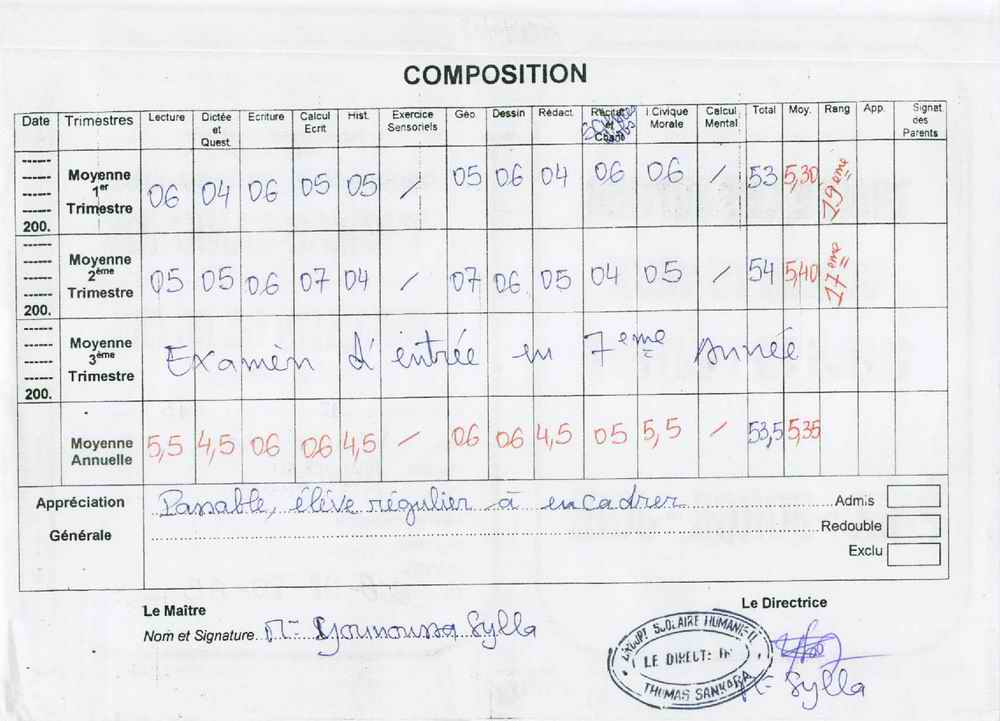 COMPOSITION
Date Trimestres Lecture Dictée et Quest. Ecriture Calcul Ecrit Hist. Exercice Sensoriels Géo. Dessin Rédact. I.Civique Morale Calcul Mental Total Moy. Rang App. Signet des Parents
------ Moyenne 1er Trimestre 06 04 06 05 05 / 05 06 04 06 06 / 53 5,30 19ème
200.
------ Moyenne 2ème Trimestre 05 05 06 07 04 / 07 06 05 04 05 / 54 5,40 17ème
200.
------ Moyenne 3ème Trimestre Examen d'entrée en 7eme Année
200.
Moyenne Annuelle 5,5 4,5 06 06 4,5 / 06 06 4,5 05 5,5 / 53,5 5,35
Appréciation Générale Passable, élève régulier à encadrer
Admis
Redouble
Exclu
Le Maître
Nom et Signature Mr Younoussa Sylla
Le Directrice
GROUPE SCOLAIRE
THOMAS SANKARA
Mr Sylla